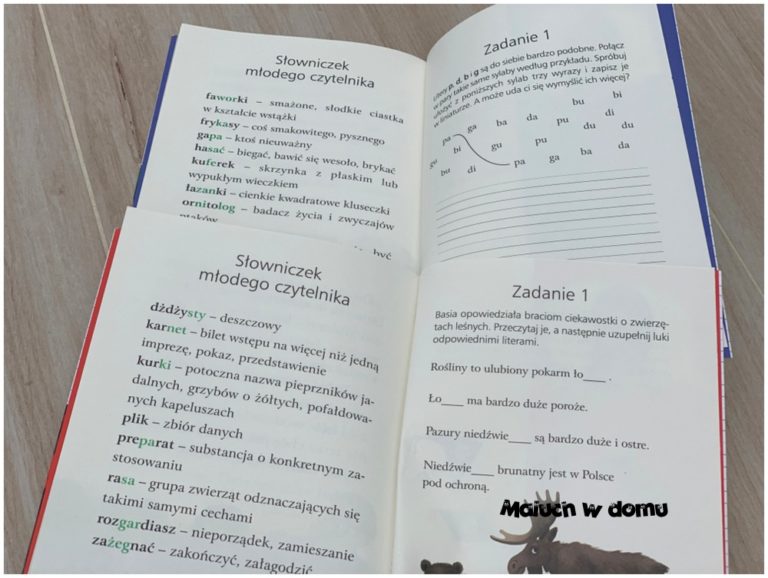 Słowniczek
młodego czytelnika
faworki – smażone, słodkie ciastka
w kształcie wstążki
frykasy – coś smakowitego, pysznego
gapa – ktoś nieuważny
hasać – biegać, bawić się wesoło, brykać
kuferek – skrzynka z płaskim lub
wypukłym wieczkiem
łazanki – cienkie kwadratowe kluseczki
ornitolog – badacz życia i zwyczajów
ptaków
być
Zadanie 1
Litery p, d, b i g są do siebie bardzo podobne. Połącz
w pary takie same sylaby według przykładu. Spróbuj
ułożyć z poniższych sylab trzy wyrazy i zapisz je
w liniaturze. A może uda ci się wymyślić ich więcej?
bu bi
pa ga ba da pu di
gu bi gu pu du du
bu di pa ga ba da
Słowniczek
młodego czytelnika
dżdżysty – deszczowy
karnet – bilet wstępu na więcej niż jedną
imprezę, pokaz, przedstawienie
kurki – potoczna nazwa pieprzników ja-
dalnych, grzybów o żółtych, pofałdowa-
nych kapeluszach
plik – zbiór danych
preparat – substancja o konkretnym za-
stosowaniu
rasa – grupa zwierząt odznaczających się
takimi samymi cechami
rozgardiasz – nieporządek, zamieszanie
zażegnać – zakończyć, załagodzić
Zadanie 1
Basia opowiedziała braciom ciekawostki o zwierzę-
tach leśnych. Przeczytaj je, a następnie uzupełnij luki
odpowiednimi literami.
Rośliny to ulubiony pokarm ło____ .
Ło____ ma bardzo duże poroże.
Pazury niedźwie____ są bardzo duże i ostre.
Niedźwie____ brunatny jest w Polsce
pod ochroną.
Maluch w domu